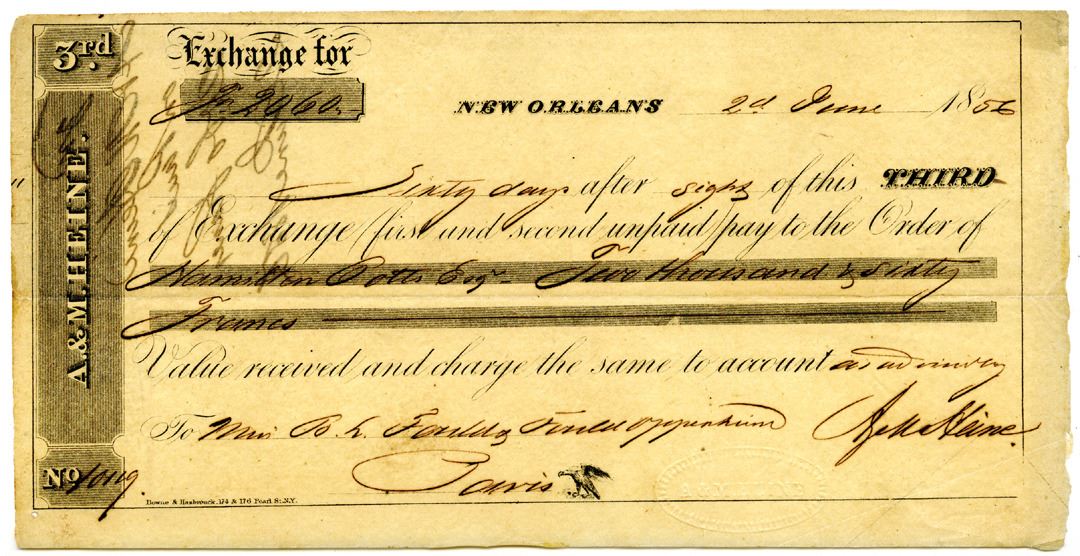 3rd
Exchange for
Fr 2060.
NEW ORLEANS 2d June 1856
Sixty days after sight of this THIRD
of Exchange (first and second unpaid) pay to the Order of
Hamilton Potts Esqr Two thousand & sixty
Francs
Value received and charge the same to account as advised by
To B. L. Fould & Fould Oppenheim A & M Heine
Paris
A. & M. HEINE.
No
Bowne & Hasbrouck, 174 & 176 Pearl St. N.Y.